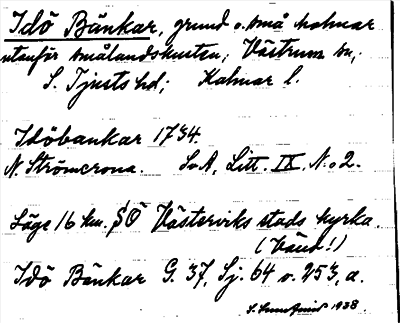 Idö Bänkar, grund o. små holmar
utanför smålandskusten; Västrum sn,
S. Tjusts hd; Kalmar l.
Idöbankar 1734.
N. Strömcrona. SvA, Litt. IX, N:o 2.
Läge 16 km. SO Västerviks stads kyrka.
(Vänd!)
Idö Bänkar G. 37, Sj. 64 o. 253, a.
S. 1938.